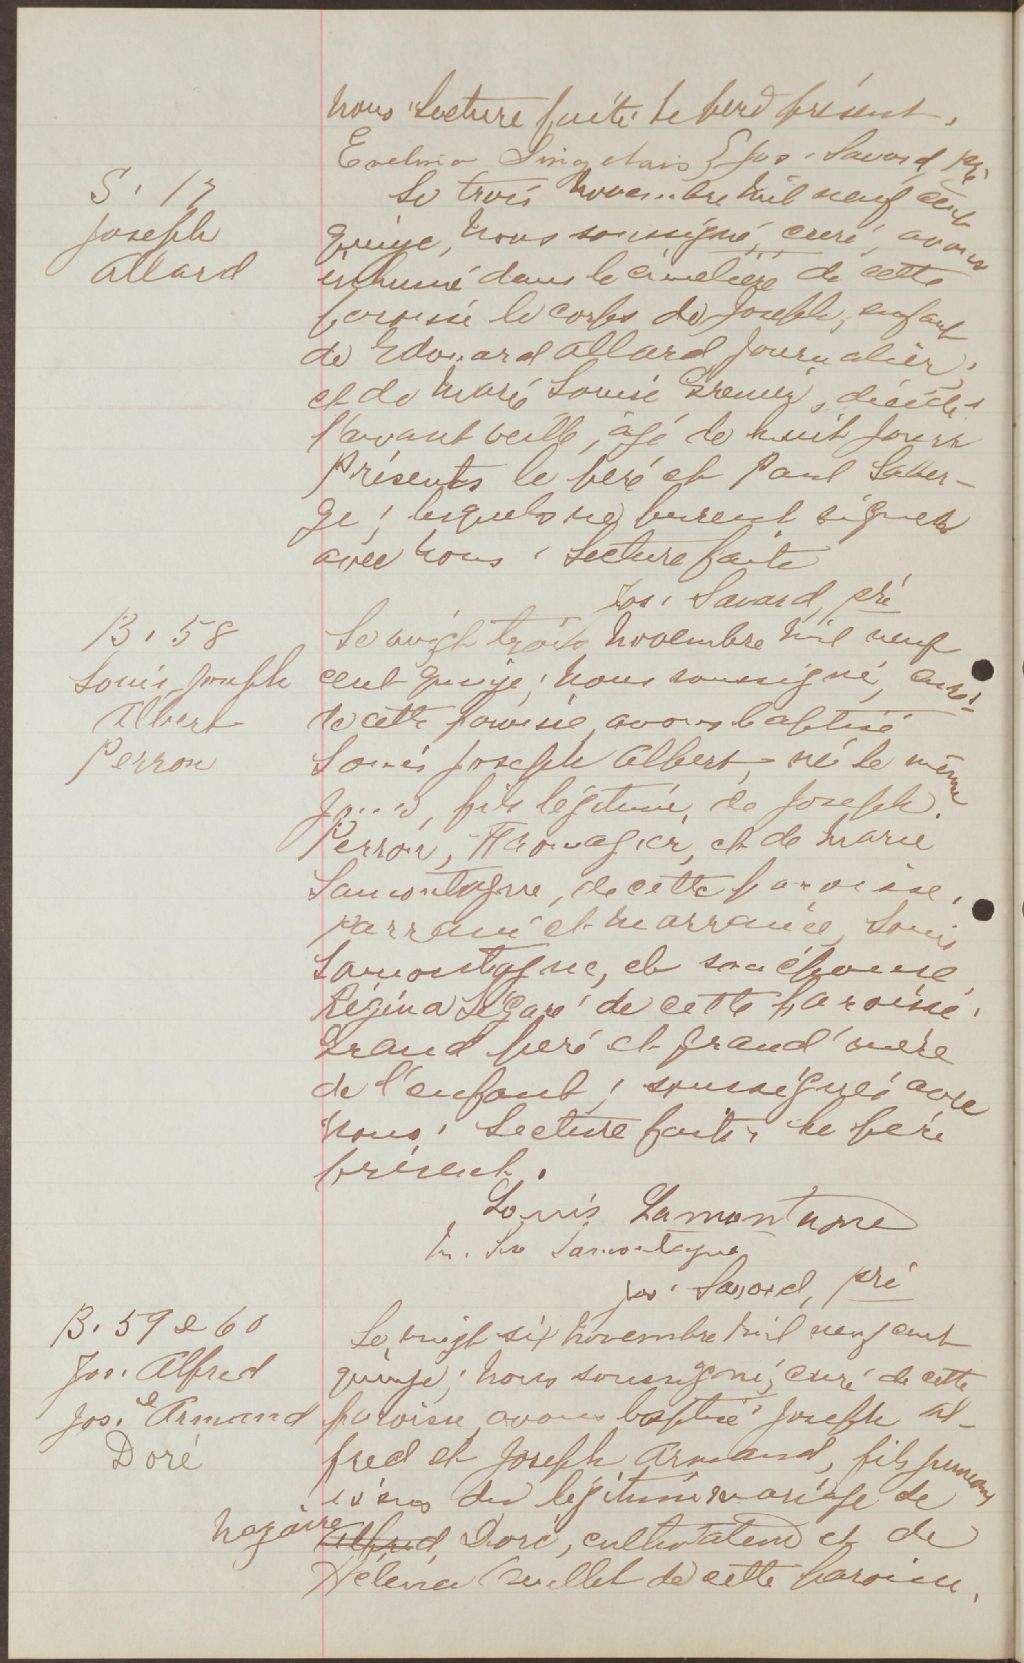 nous. Lecture faite. Le père présent.
Evelina Jos. Savard, ptre
S. 17
Joseph
Allard
Le trois novembre mil neuf cent
quinze, nous soussigné, curé, avons
inhumé dans le cimetière de cette
paroisse le corps de Joseph, enfant
de Edouard Allard journalier,
et de Marie Louise Grenier, décédé
l'avant veille, âgé de huit jours
Présents le père et Paul Laber-
ge; lesquels ne purent signer
avec nous. Lecture faite
Jos. Savard, ptre
B. 58
Louis Joseph
Albert
Perron
Le vingt trois novembre mil neuf
cent quinze; nous soussigné, curé
de cette paroisse avons baptisé
Louis Joseph Albert, né le même
jour, fils légitime, de Joseph
Perron, Fromager, et de Marie
Lamontagne, de cette paroisse,
Parrain et marraine, Louis
Lamontagne, et son épouse
Régina Légaré de cette paroisse.
Grand père et grand'mère
de l'enfant; soussignés avec
nous. Lecture faite. Le père
présent.
Louis Lamontagne
Lamontagne
Jos. Savard, ptre
B. 59 & 60
Jos. Alfred
Jos. & Armand
Doré
Le vingt six novembre mil neuf cent
quinze; nous soussigné, curé de cette
paroisse avons baptisé Joseph Al-
fred et Joseph Armand, fils jumeaux
issus du légitime mariage de
Nazaire Alfred Doré, cultivateur et de
Héléna Ouellet de cette paroisse.